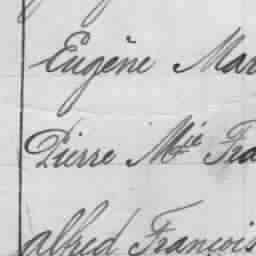 Eugène Mar
Pierre Mie Fra
alfred François